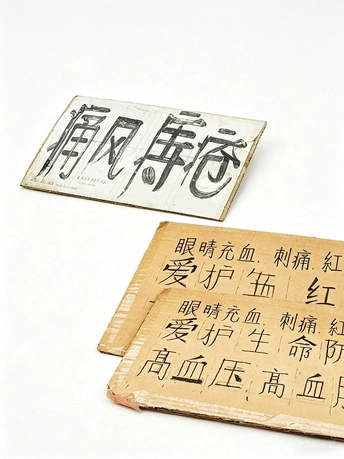 痛风痔疮
眼晴充血. 刺痛. 紅
爱护 红
眼晴充血. 刺痛. 紅
爱护生命防
髙血压 髙血